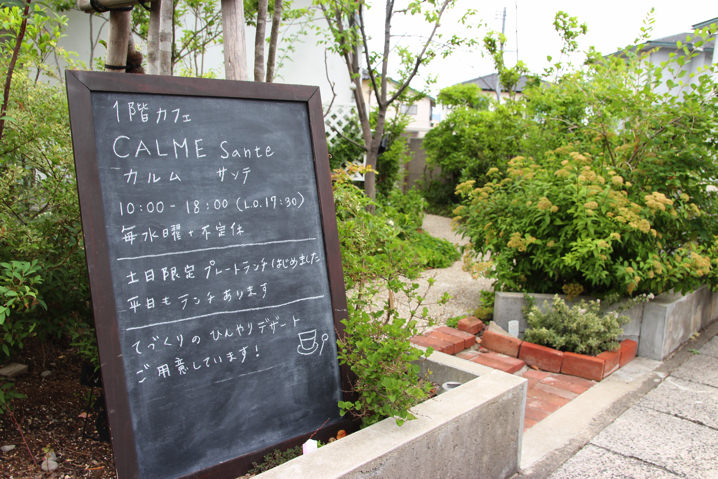 1階カフェ
CALME Sante
カルム サンテ
10:00-18:00 (L.O.17:30)
毎水曜+不定休
土日限定プレートランチはじめました
平日もランチあります
てづくりのひんやりデザート
ご用意しています!